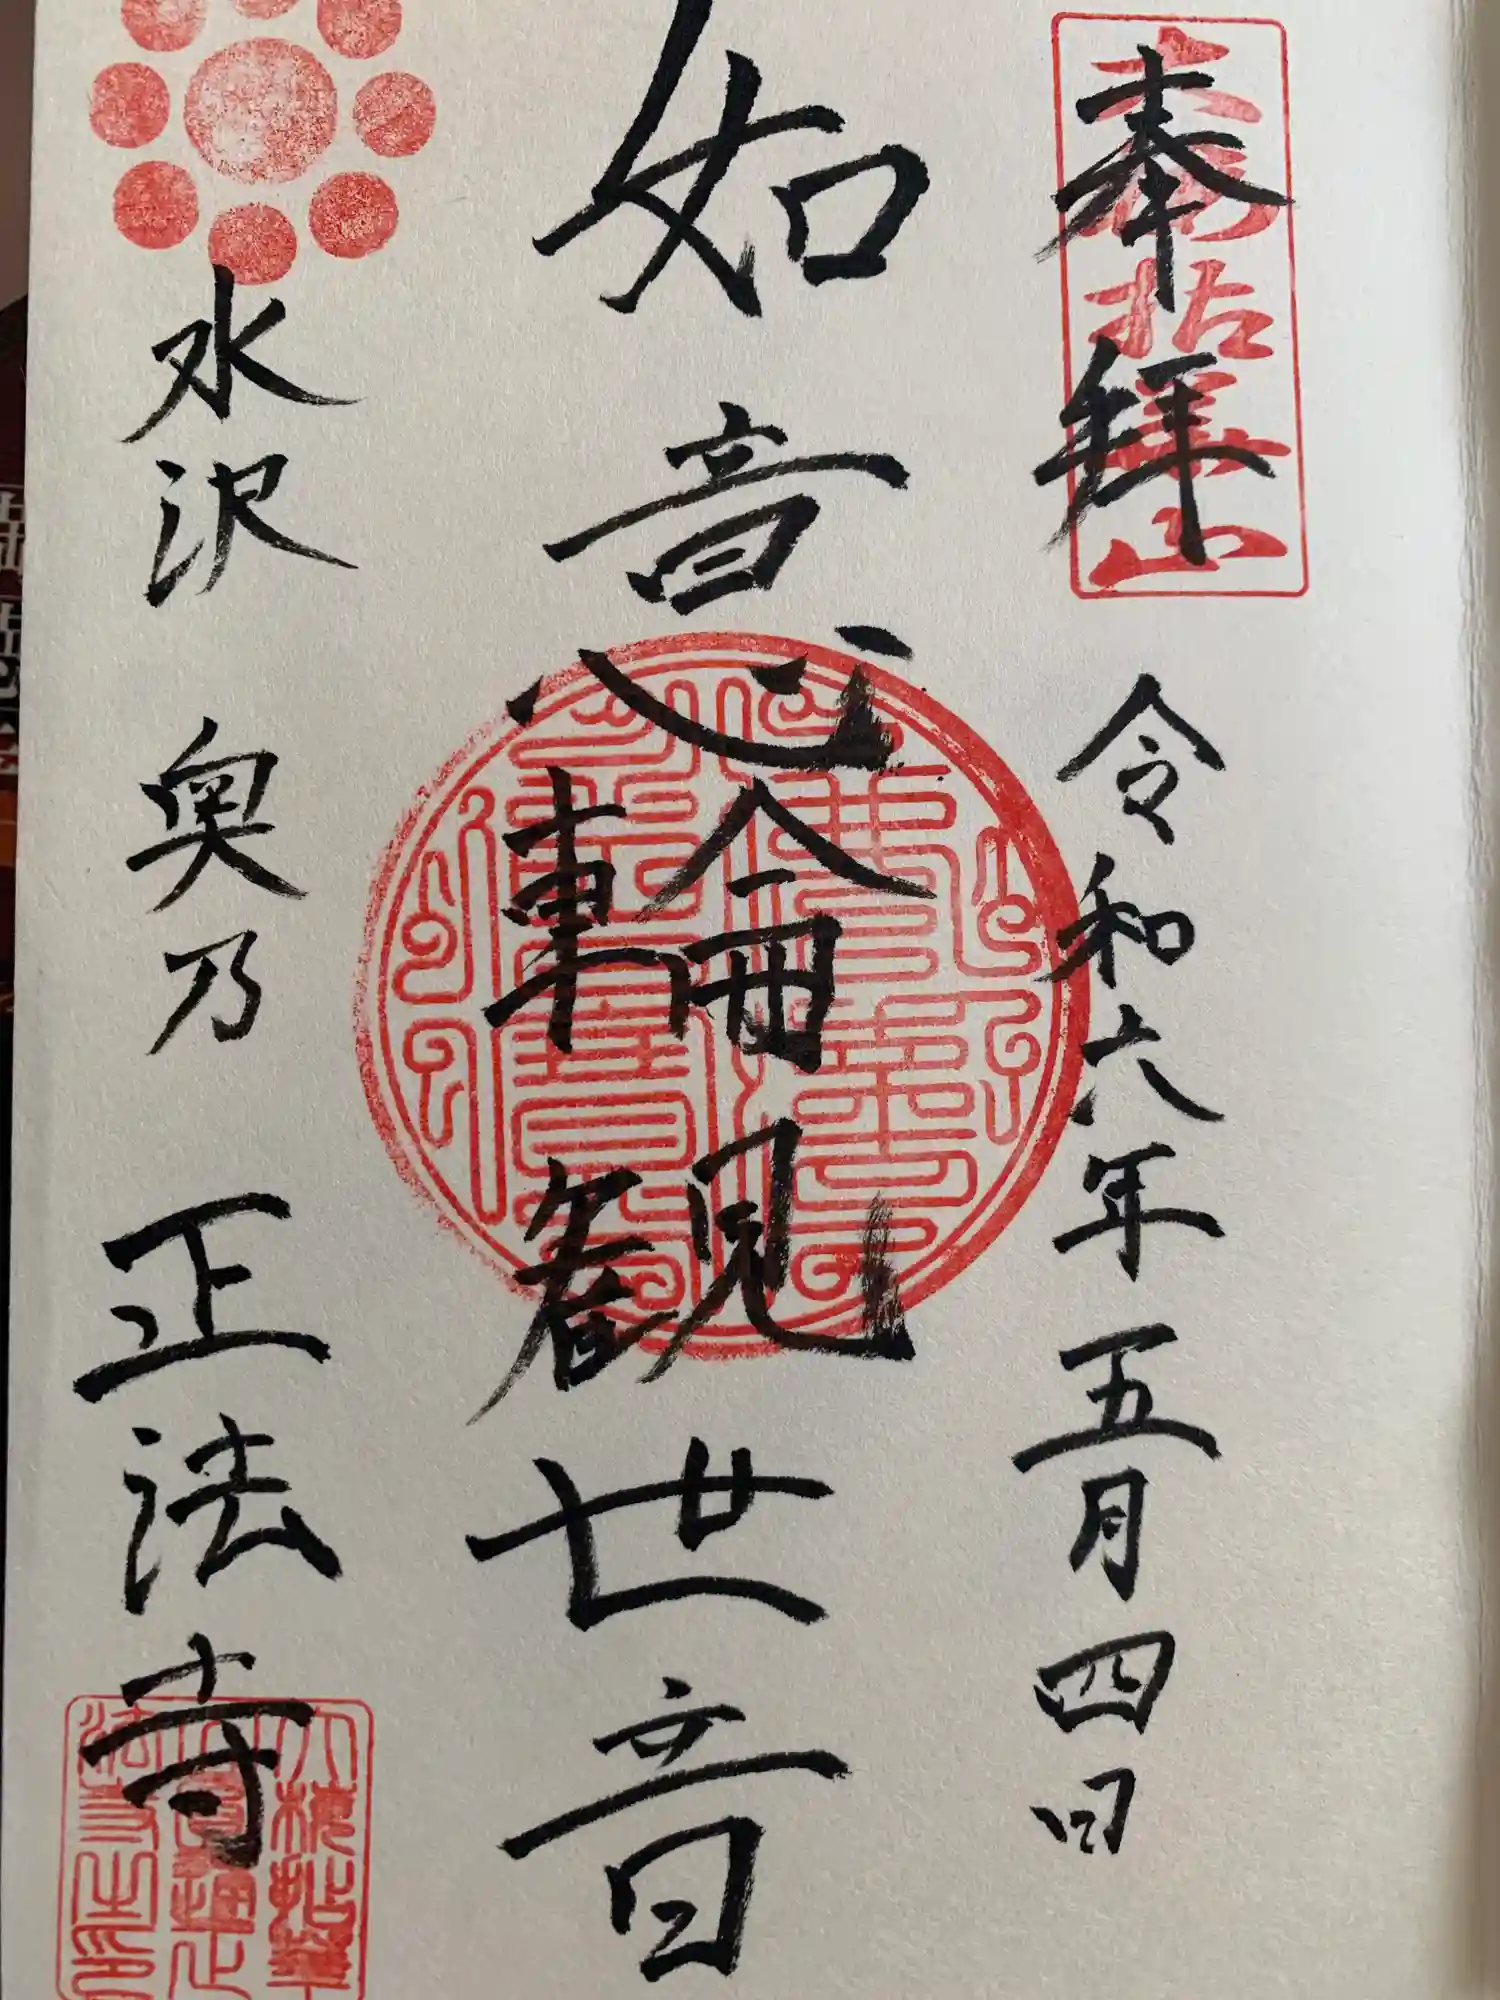 奉拝
大梅拈華山
令和六年五月四日
如意輪観世音
水沢 奥乃 正法寺